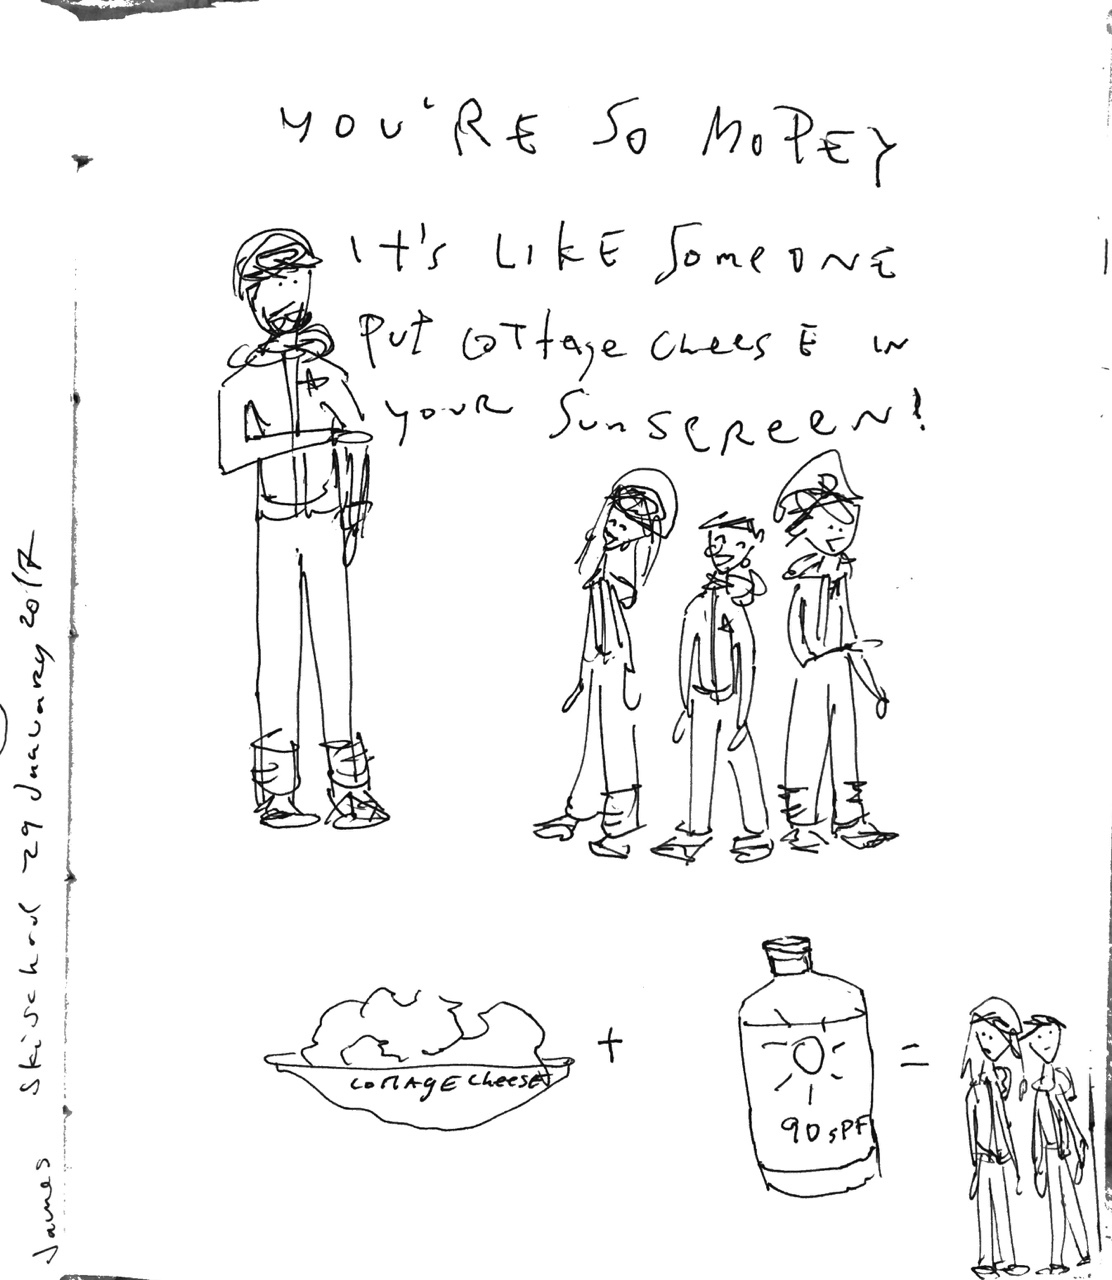 YOU'RE SO MOPEY
IT'S LIKE SOMEONE
PUT COTTAGE CHEESE IN
YOUR SUNSCREEN!
COTTAGE CHEESE
+
90 SPF
=
James Skischool 29 January 2017